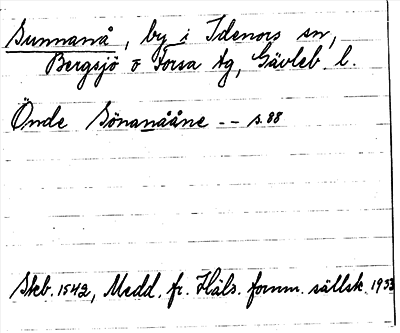 Sunnanå, by i Idenors sn,
Bergsjö o Forsa tg, Gävleb. l.
Önde Sönanååne -- s. 88
Skb. 1542, Medd. fr. Häls. fornm. sällsk. 1933